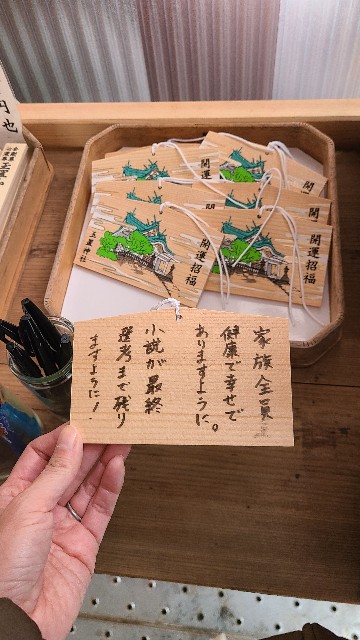 家族全員
健康で幸せで
ありますように。
小説が最終
選考まで残り
ますように！
開運招福
開運招福
開運招福
開運
開
円也